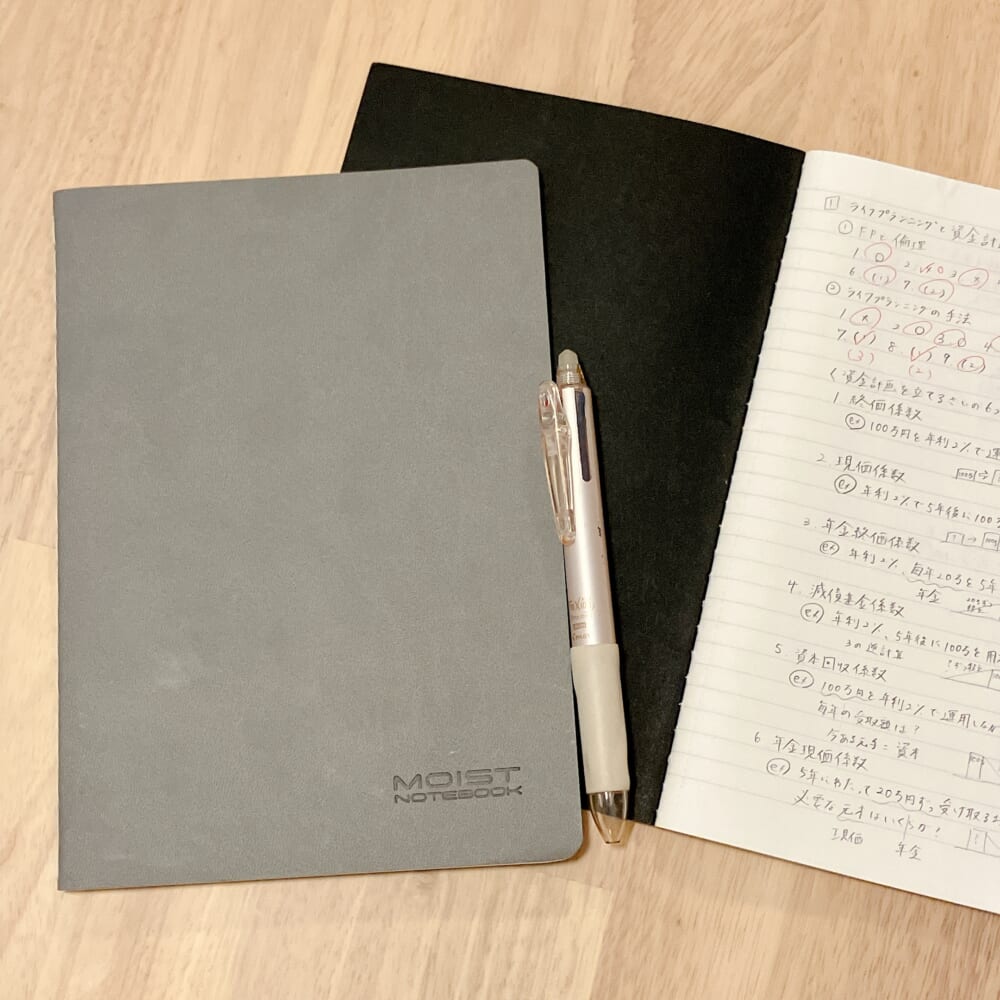 MOIST
NOTEBOOK
1 ライフプランニングと資金計
① FPと倫理
1. ○ 2. ○ 3 ×
6 (1) 7. (2)
② ライフプランニングの手法
1 × 2 ○ 3 ○ 4
7. (1) 8. (1) 9 (2)
(3) (2)
<資金計画を立てるさいの6
1. 終価係数
ex 100万円を年利2%で運
2. 現価係数
ex 年利2%で5年後に100万
3. 年金終価係数
ex 年利2%、毎年20万を5年
年金
4. 減債基金係数
ex 年利2%、5年後に100万を用
3の逆計算
5. 資本回収係数
ex 100万円を年利2%で運用しなが
毎年の受取額は?
今ある元手=資本
6 年金現価係数
ex 5年にわたって20万円ずつ受け取る
必要な元手はいくらか?
現価 年金